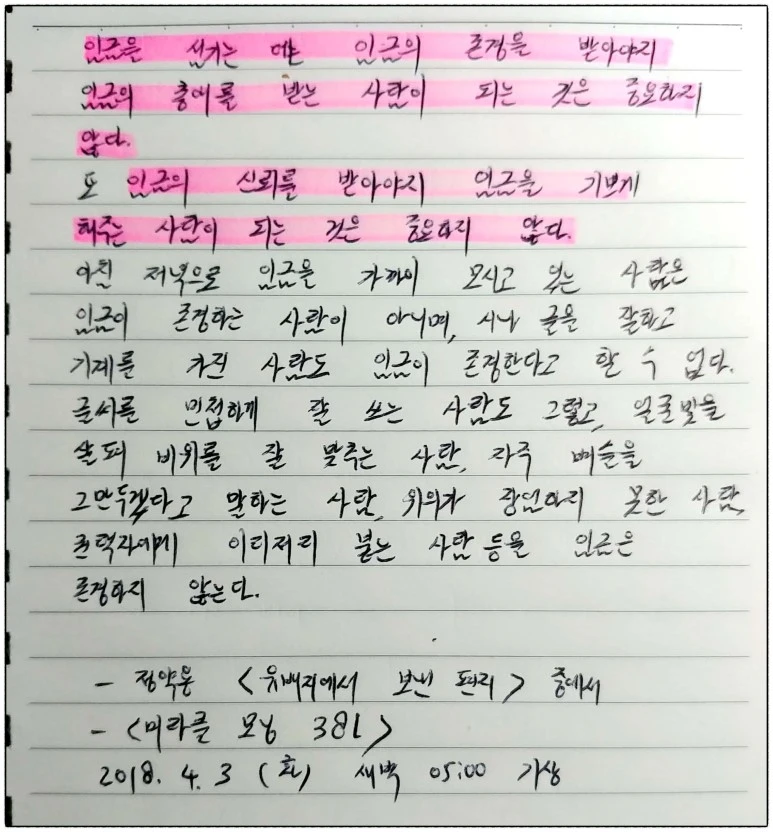 임금을 섬기는 데는 임금의 존경을 받아야지
임금의 총애를 받는 사람이 되는 것은 중요하지
않다.
또 임금의 신뢰를 받아야지 임금을 기쁘게
해주는 사람이 되는 것은 중요하지 않다.
아침 저녁으로 임금을 가까이 모시고 있는 사람은
임금이 존경하는 사람이 아니며, 시나 글을 잘하고
기예를 가진 사람도 임금이 존경한다고 할 수 없다.
글씨를 민첩하게 잘 쓰는 사람도 그렇고, 얼굴빛을
살펴 비위를 잘 맞추는 사람, 자주 벼슬을
그만두겠다고 말하는 사람, 위의가 장엄하지 못한 사람,
권력자에게 이리저리 붙는 사람 등을 임금은
존경하지 않는다.
- 정약용 <유배지에서 보낸 편지> 중에서
- <미라클 모닝 38일>
2018. 4. 3 (화) 새벽 05:00 기상